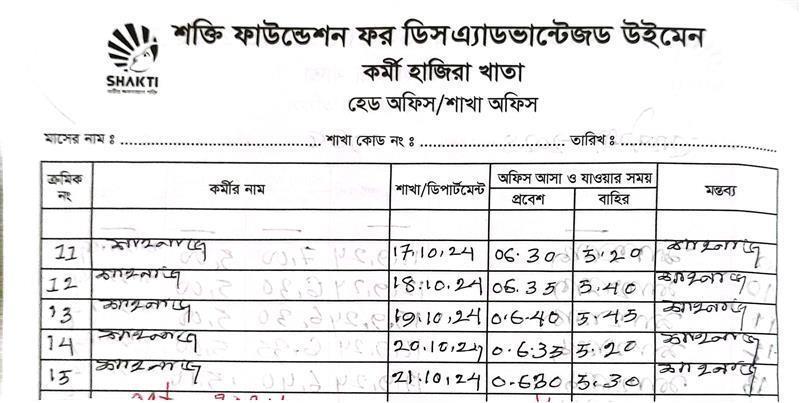 শক্তি ফাউন্ডেশন ফর ডিসএ্যাডভান্টেজড উইমেন
SHAKTI
কর্মী হাজিরা খাতা
হেড অফিস/শাখা অফিস
মাসের নাম ঃ ........................................ শাখা কোড নং ঃ ............................ তারিখ ঃ ....................
ক্রমিক নং কর্মীর নাম শাখা/ডিপার্টমেন্ট অফিস আসা ও যাওয়ার সময় মন্তব্য
প্রবেশ বাহির
11 শাহনাজ 17.10.24 06.30 5.20 শাহনাজ
12 শাহনাজ 18.10.24 06.35 5.40 শাহনাজ
13 শাহনাজ 19.10.24 0.6.40 5.45 শাহনাজ
14 শাহনাজ 20.10.24 0.6.35 5.20 শাহনাজ
15 শাহনাজ 21.10.24 0.630 5.30 শাহনাজ